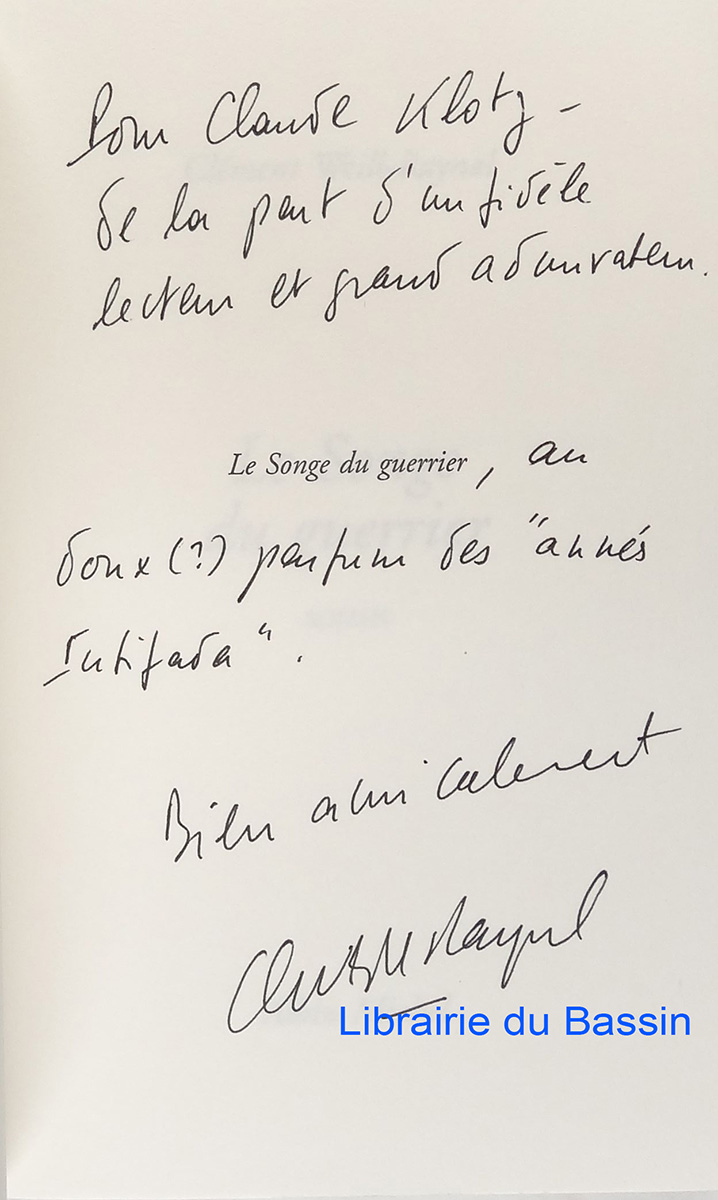 Pour Claude Klotz –
de la part d'un fidèle
lecteur et grand admirateur.
Le Songe du guerrier, au
doux (?) parfum des "années
Intifada".
Bien amicalement
Librairie du Bassin